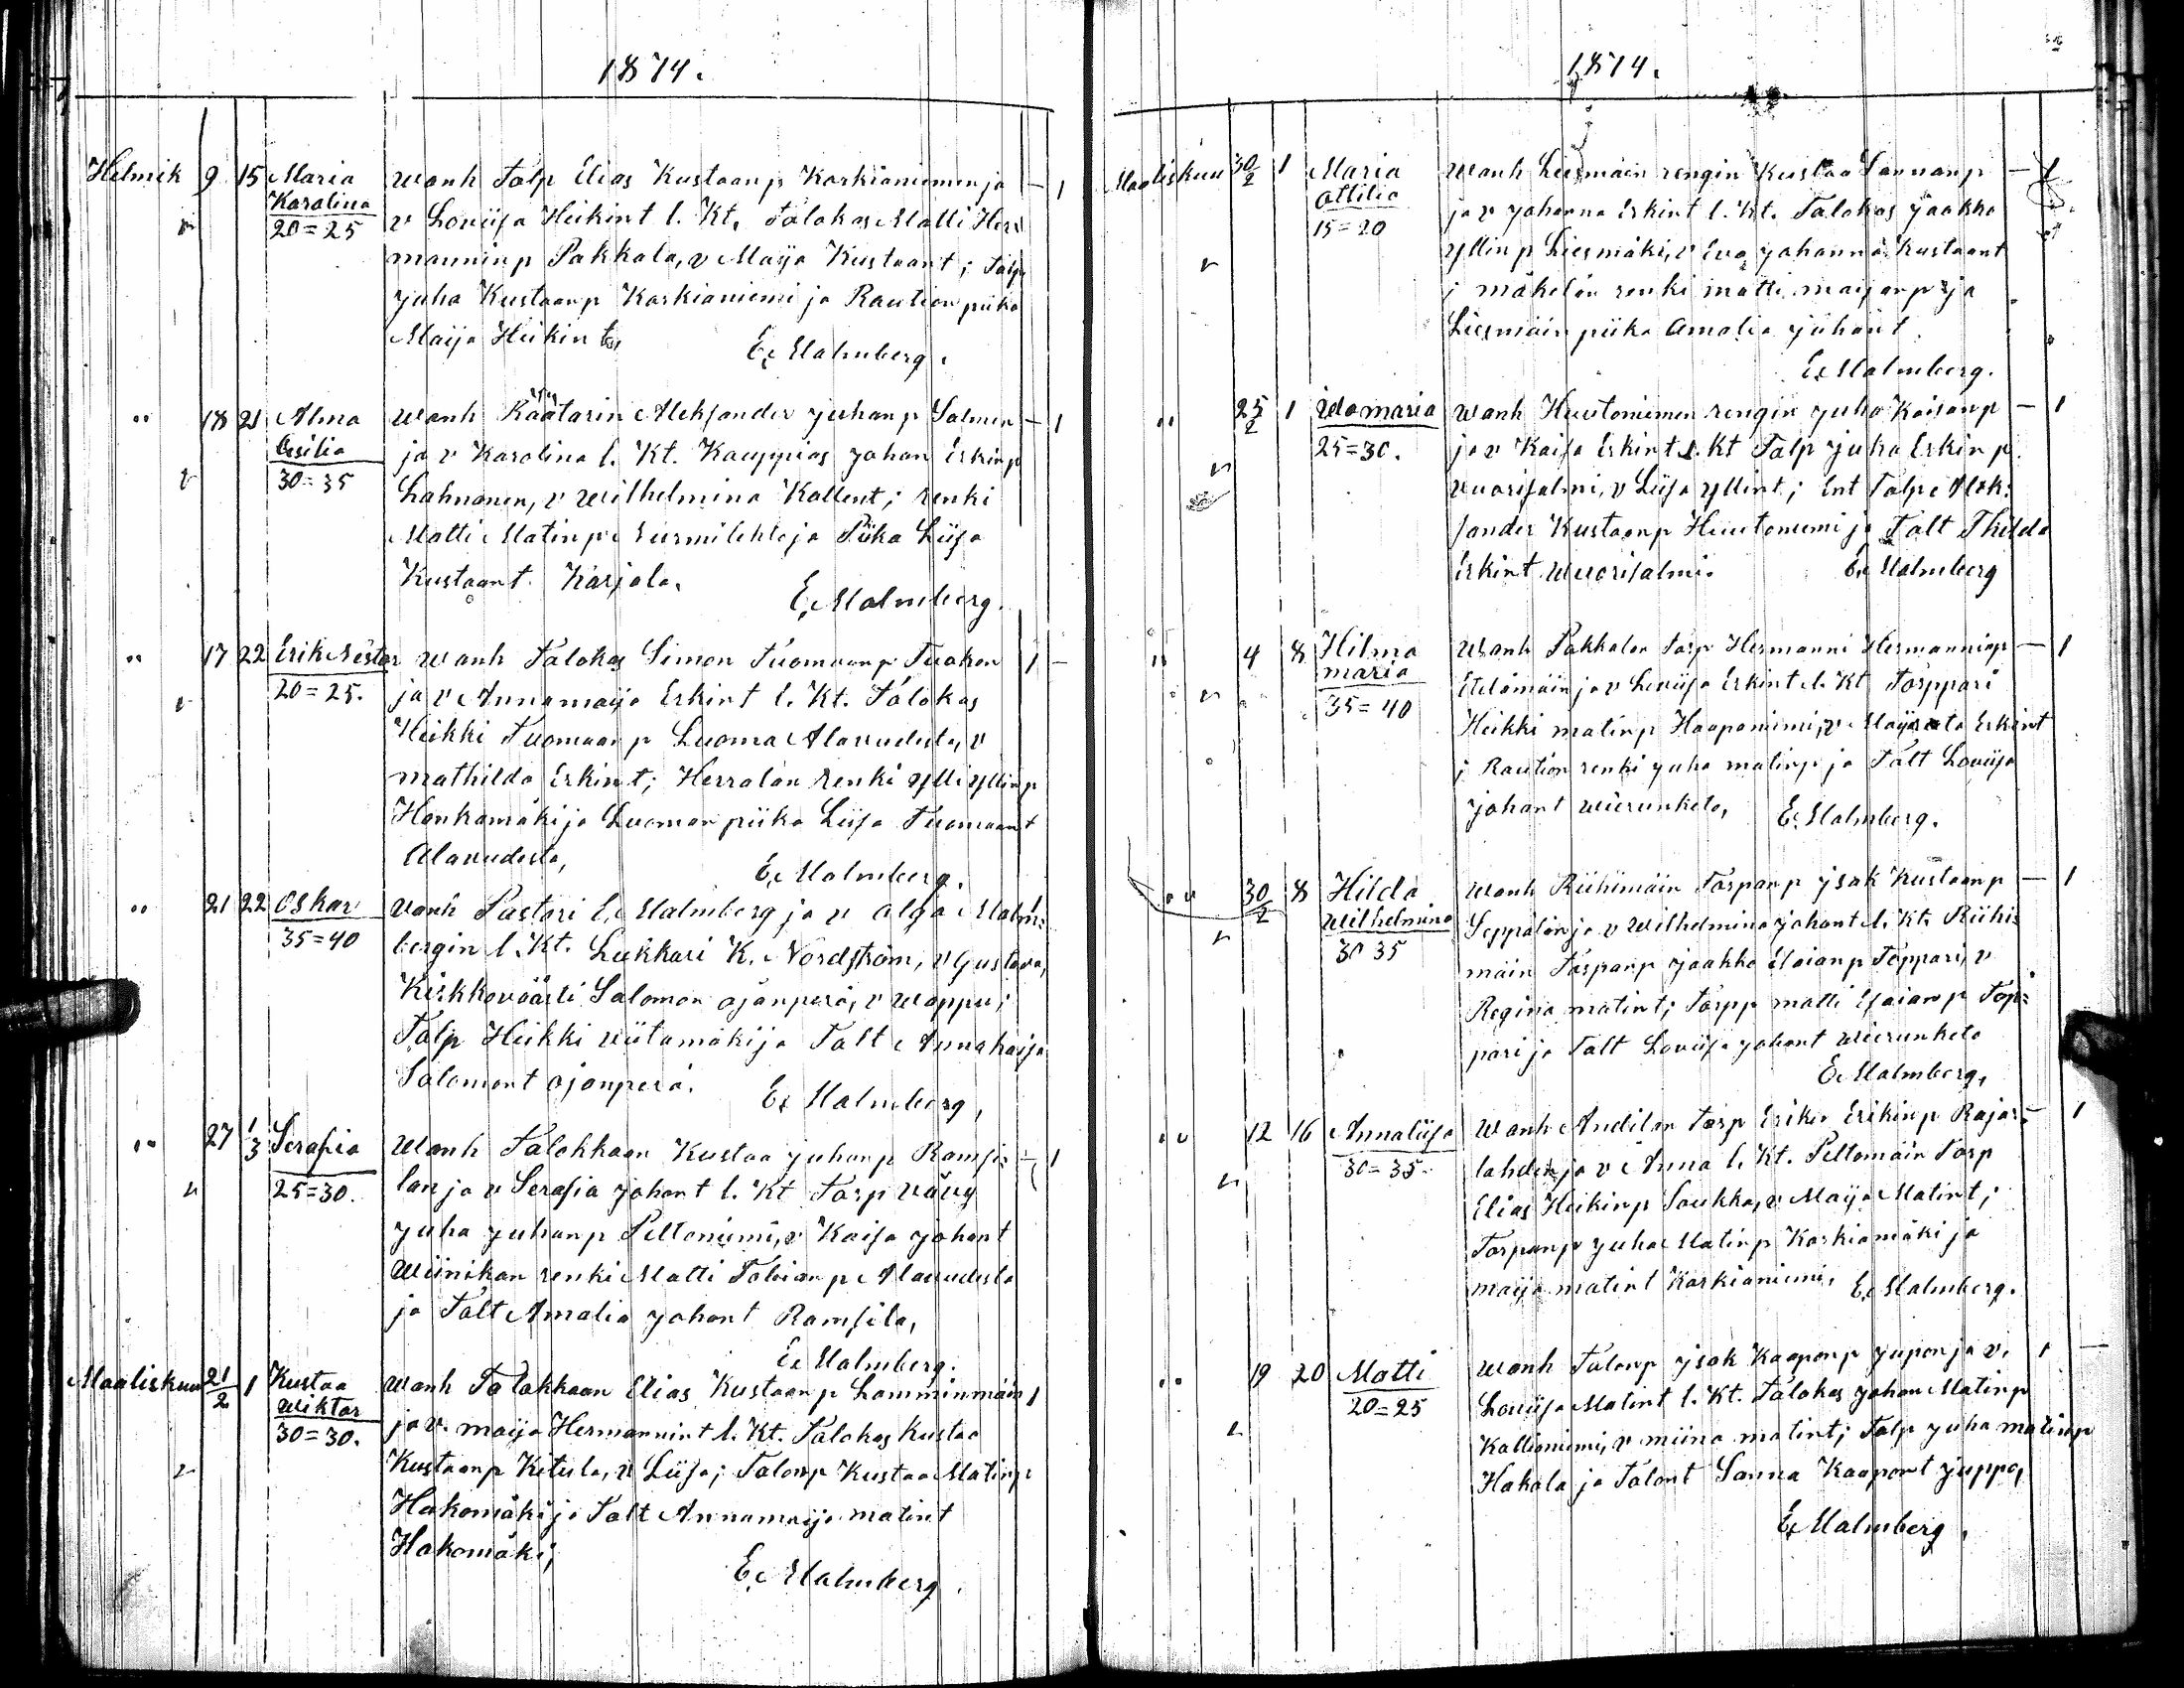 1874.
Helmik 9 15 Maria Wanh Talp Elias Kustaanp Karkianiemen ja — 1
Karolina v Loviisa Heikint l. Kt. Talokas Matti Her=
20=25 manninp Pakkala, v Maija Kustaant; Talp
Juha Kustaanp Karkianiemi ja Raution piika
Maija Heikint
E. Malmberg.
" 18 21 Alma Wanh Räätarin Aleksander Juhanp Salmen — 1
Cesilia ja v Karolina l. Kt. Kauppias Johan Erkinp
30=35 Lahnanen, v Wilhelmina Kallent; renki
Matti Matinp Nurmilehto ja Piika Liisa
Kustaant. Karjala.
E. Malmberg.
" 17 22 Erik Nestor Wanh Talokas Simon Tuomaanp Tuakon 1 —
20=25. ja v Annamaija Erkint l. Kt. Talokas
Heikki Tuomaanp Luoma Alavudesta, v
Mathilda Erkint; Herralan renki Ylli Yllinp
Honkamäki ja Luoman piika Liisa Tuomaant
Alavudesta,
E. Malmberg.
" 21 22 Oskar Vanh Pastori E. Malmberg ja v Olga Malm= 1
35=40 bergin l. Kt. Lukkari K. Nordström, v Gustava,
Kirkkoväärti Salomon Ojanperä, v Wappu;
Talp Heikki Viitamäki ja Talt Annakaisa
Salomont Ojanperä.
E. Malmberg,
" 27 1/3 Serafia Wanh Talokkaan Kustaa Juhanp Ramsi= — 1
25=30. lan ja v Serafia Johant l. Kt Torp vävy
Juha Juhanp Peltoniemi, v Kaisa Johant
Wiinikan renki Matti Tobianp Alavudesta
ja Talt Amalia Johant Ramsila,
E. Malmberg.
Maaliskuu 21/2 1 Kustaa Wanh Talokkaan Elias Kustaanp Lamminmäin 1
Wiktor ja v. Maija Hermannint l. Kt. Talokas Kustaa
30=30. Kustaanp Kitula, v Liisa; Talonp Kustaa Matinp
Hakomäki ja Talt Annamaija Matint
Hakomäki;
E. Malmberg.
1874.
Maaliskuu 30/2 1 Maria Wanh Liesmäin rengin Kustaa Sannanp — 1
Ottilia ja v Johanna Erkint l. Kt. Talokas Jaakko
15=20 Yllinp Liesmäki, v Eva Johanna Kustaant
; Mäkelän renki Matti Maijanp ja
Liesmäin piika Amalia Juhant
E. Malmberg.
" 25/2 1 Idamaria Wanh Huutoniemen rengin Juha Kaisanp — 1
25=30. ja v Kaisa Erkint l. Kt Talp Juha Erkinp
Wuorisalmi, v Liisa Yllint; Ent Talp Alek=
sander Kustaanp Huutoniemi ja Talt Thilda
Erkint Wuorisalmi.
E. Malmberg
" 4 8 Hilma Wanh Pakkalan Torp Hermanni Hermanninp — 1
Maria Etelämäin ja v Loviisa Erkint l. Kt Torppari
35=40 Heikki Matinp Haaponiemi, v Maija Erkint
; Raution renki Juha Matinp ja Talt Loviisa
Johant Wierunketo,
E. Malmberg.
" 30/2 8 Hilda Wanh Riihimäin Torpanp Isak Kustaanp — 1
Wilhelmina Seppälän ja v Wilhelmina Johant l. Kt. Riihi=
30 35 mäin Torpanp Jaakko Esaianp Toppari, v
Regina Matint; Torpp Matti Esaianp Top=
pari ja Talt Loviisa Johant Wierunketo
E. Malmberg,
" 12 16 Annaliisa Wanh Andilan Torp Erikin Erikinp Rajas= — 1
30=35. lahden ja v Anna l. Kt. Peltomäin Torp
Elias Heikinp Soukka, v Maija Matint;
Torpanp Juha Matinp Karkiamäki ja
Maija Matint Karkianiemi,
E. Malmberg.
" 19 20 Matti Wanh Talonp Isak Kaaponp Jupon ja v. 1 —
20=25 Loviisa Matint l. Kt. Talokas Johan Matinp
Kallioniemi, v Miina Matint; Talp Juha Matinp
Hakala ja Talont Sanna Kaapont Juppo,
E. Malmberg.